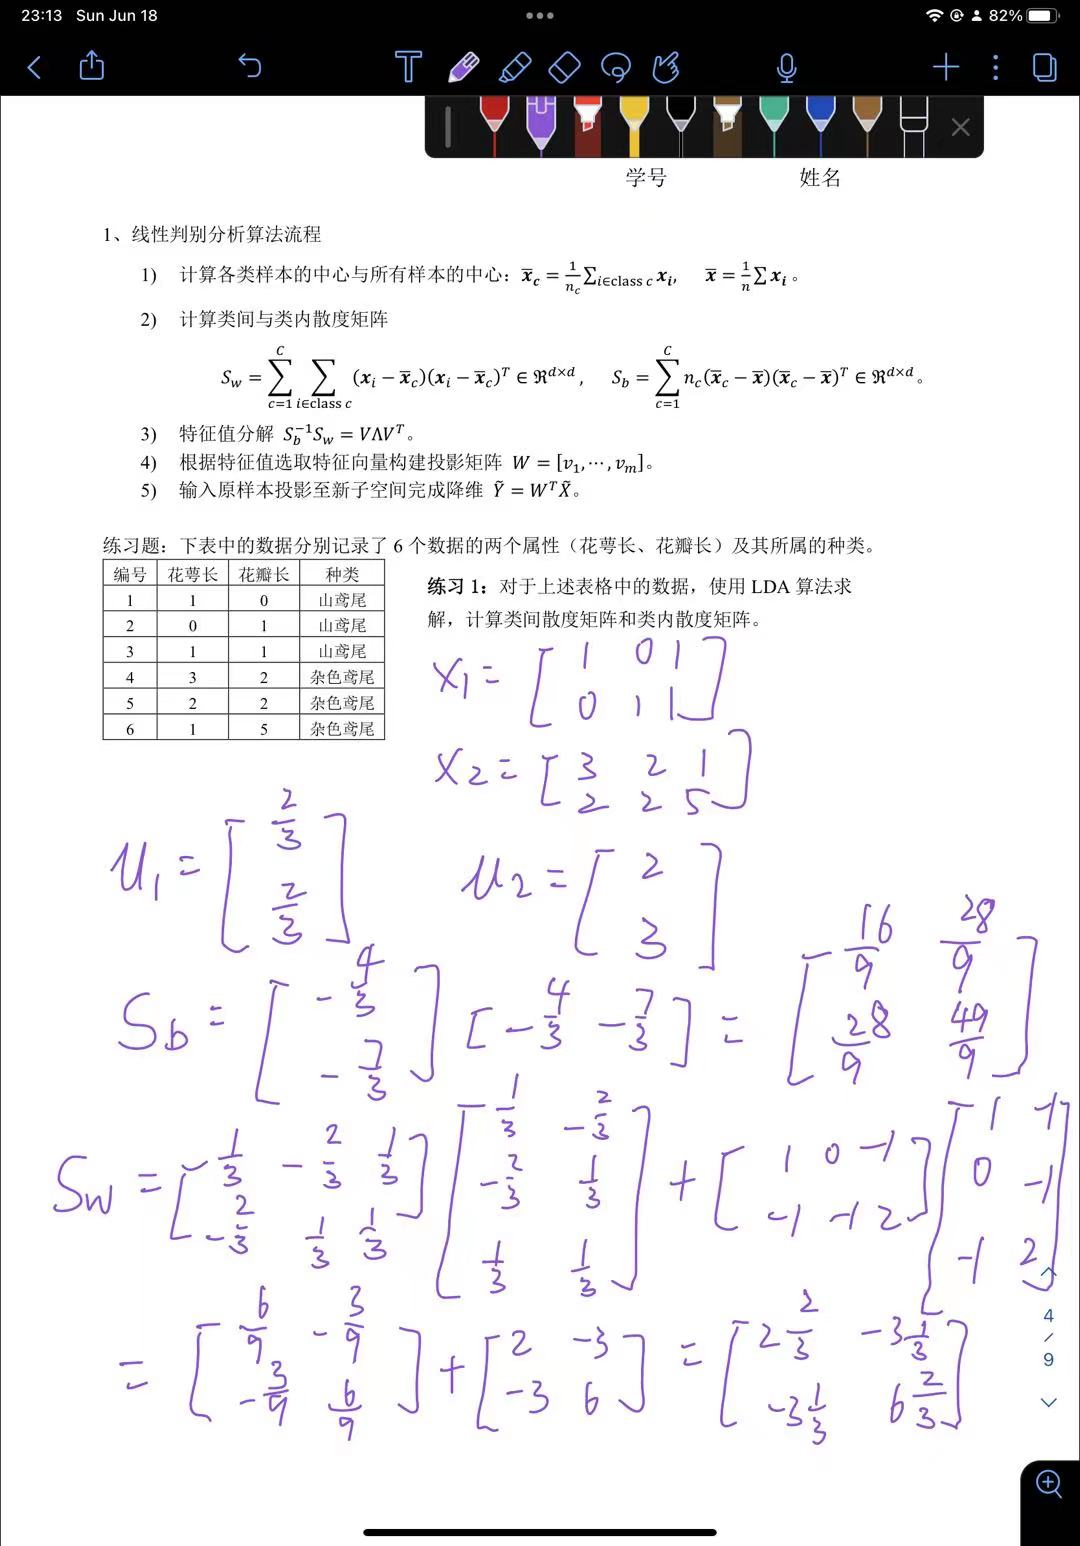 23:13 Sun Jun 18
82%
学号 姓名
1、线性判别分析算法流程
1) 计算各类样本的中心与所有样本的中心：x̄_c = 1/n_c ∑_{i∈class c} x_i, x̄ = 1/n ∑ x_i 。
2) 计算类间与类内散度矩阵
S_w = ∑_{c=1}^{C} ∑_{i∈class c} (x_i − x̄_c)(x_i − x̄_c)^T ∈ ℜ^{d×d} , S_b = ∑_{c=1}^{C} n_c(x̄_c − x̄)(x̄_c − x̄)^T ∈ ℜ^{d×d} 。
3) 特征值分解 S_b^{-1}S_w = VΛV^T 。
4) 根据特征值选取特征向量构建投影矩阵 W = [v_1, ⋯ , v_m]。
5) 输入原样本投影至新子空间完成降维 Ỹ = W^T X̃。
练习题：下表中的数据分别记录了 6 个数据的两个属性（花萼长、花瓣长）及其所属的种类。
编号 花萼长 花瓣长 种类
1 1 0 山鸢尾
2 0 1 山鸢尾
3 1 1 山鸢尾
4 3 2 杂色鸢尾
5 2 2 杂色鸢尾
6 1 5 杂色鸢尾
练习 1：对于上述表格中的数据，使用 LDA 算法求
解，计算类间散度矩阵和类内散度矩阵。
X1 = [1 0 1; 0 1 1]
X2 = [3 2 1; 2 2 5]
u1 = [2/3; 2/3] u2 = [2; 3]
Sb = [-4/3; -7/3] [-4/3 -7/3] = [16/9 28/9; 28/9 49/9]
Sw = [1/3 -2/3 1/3; -2/3 1/3 1/3] [1/3 -2/3; -2/3 1/3; 1/3 1/3] + [1 0 -1; -1 -1 2] [1 -1; 0 -1; -1 2]
= [6/9 -3/9; -3/9 6/9] + [2 -3; -3 6] = [2 2/3 -3 1/3; -3 1/3 6 2/3]
4
/
9